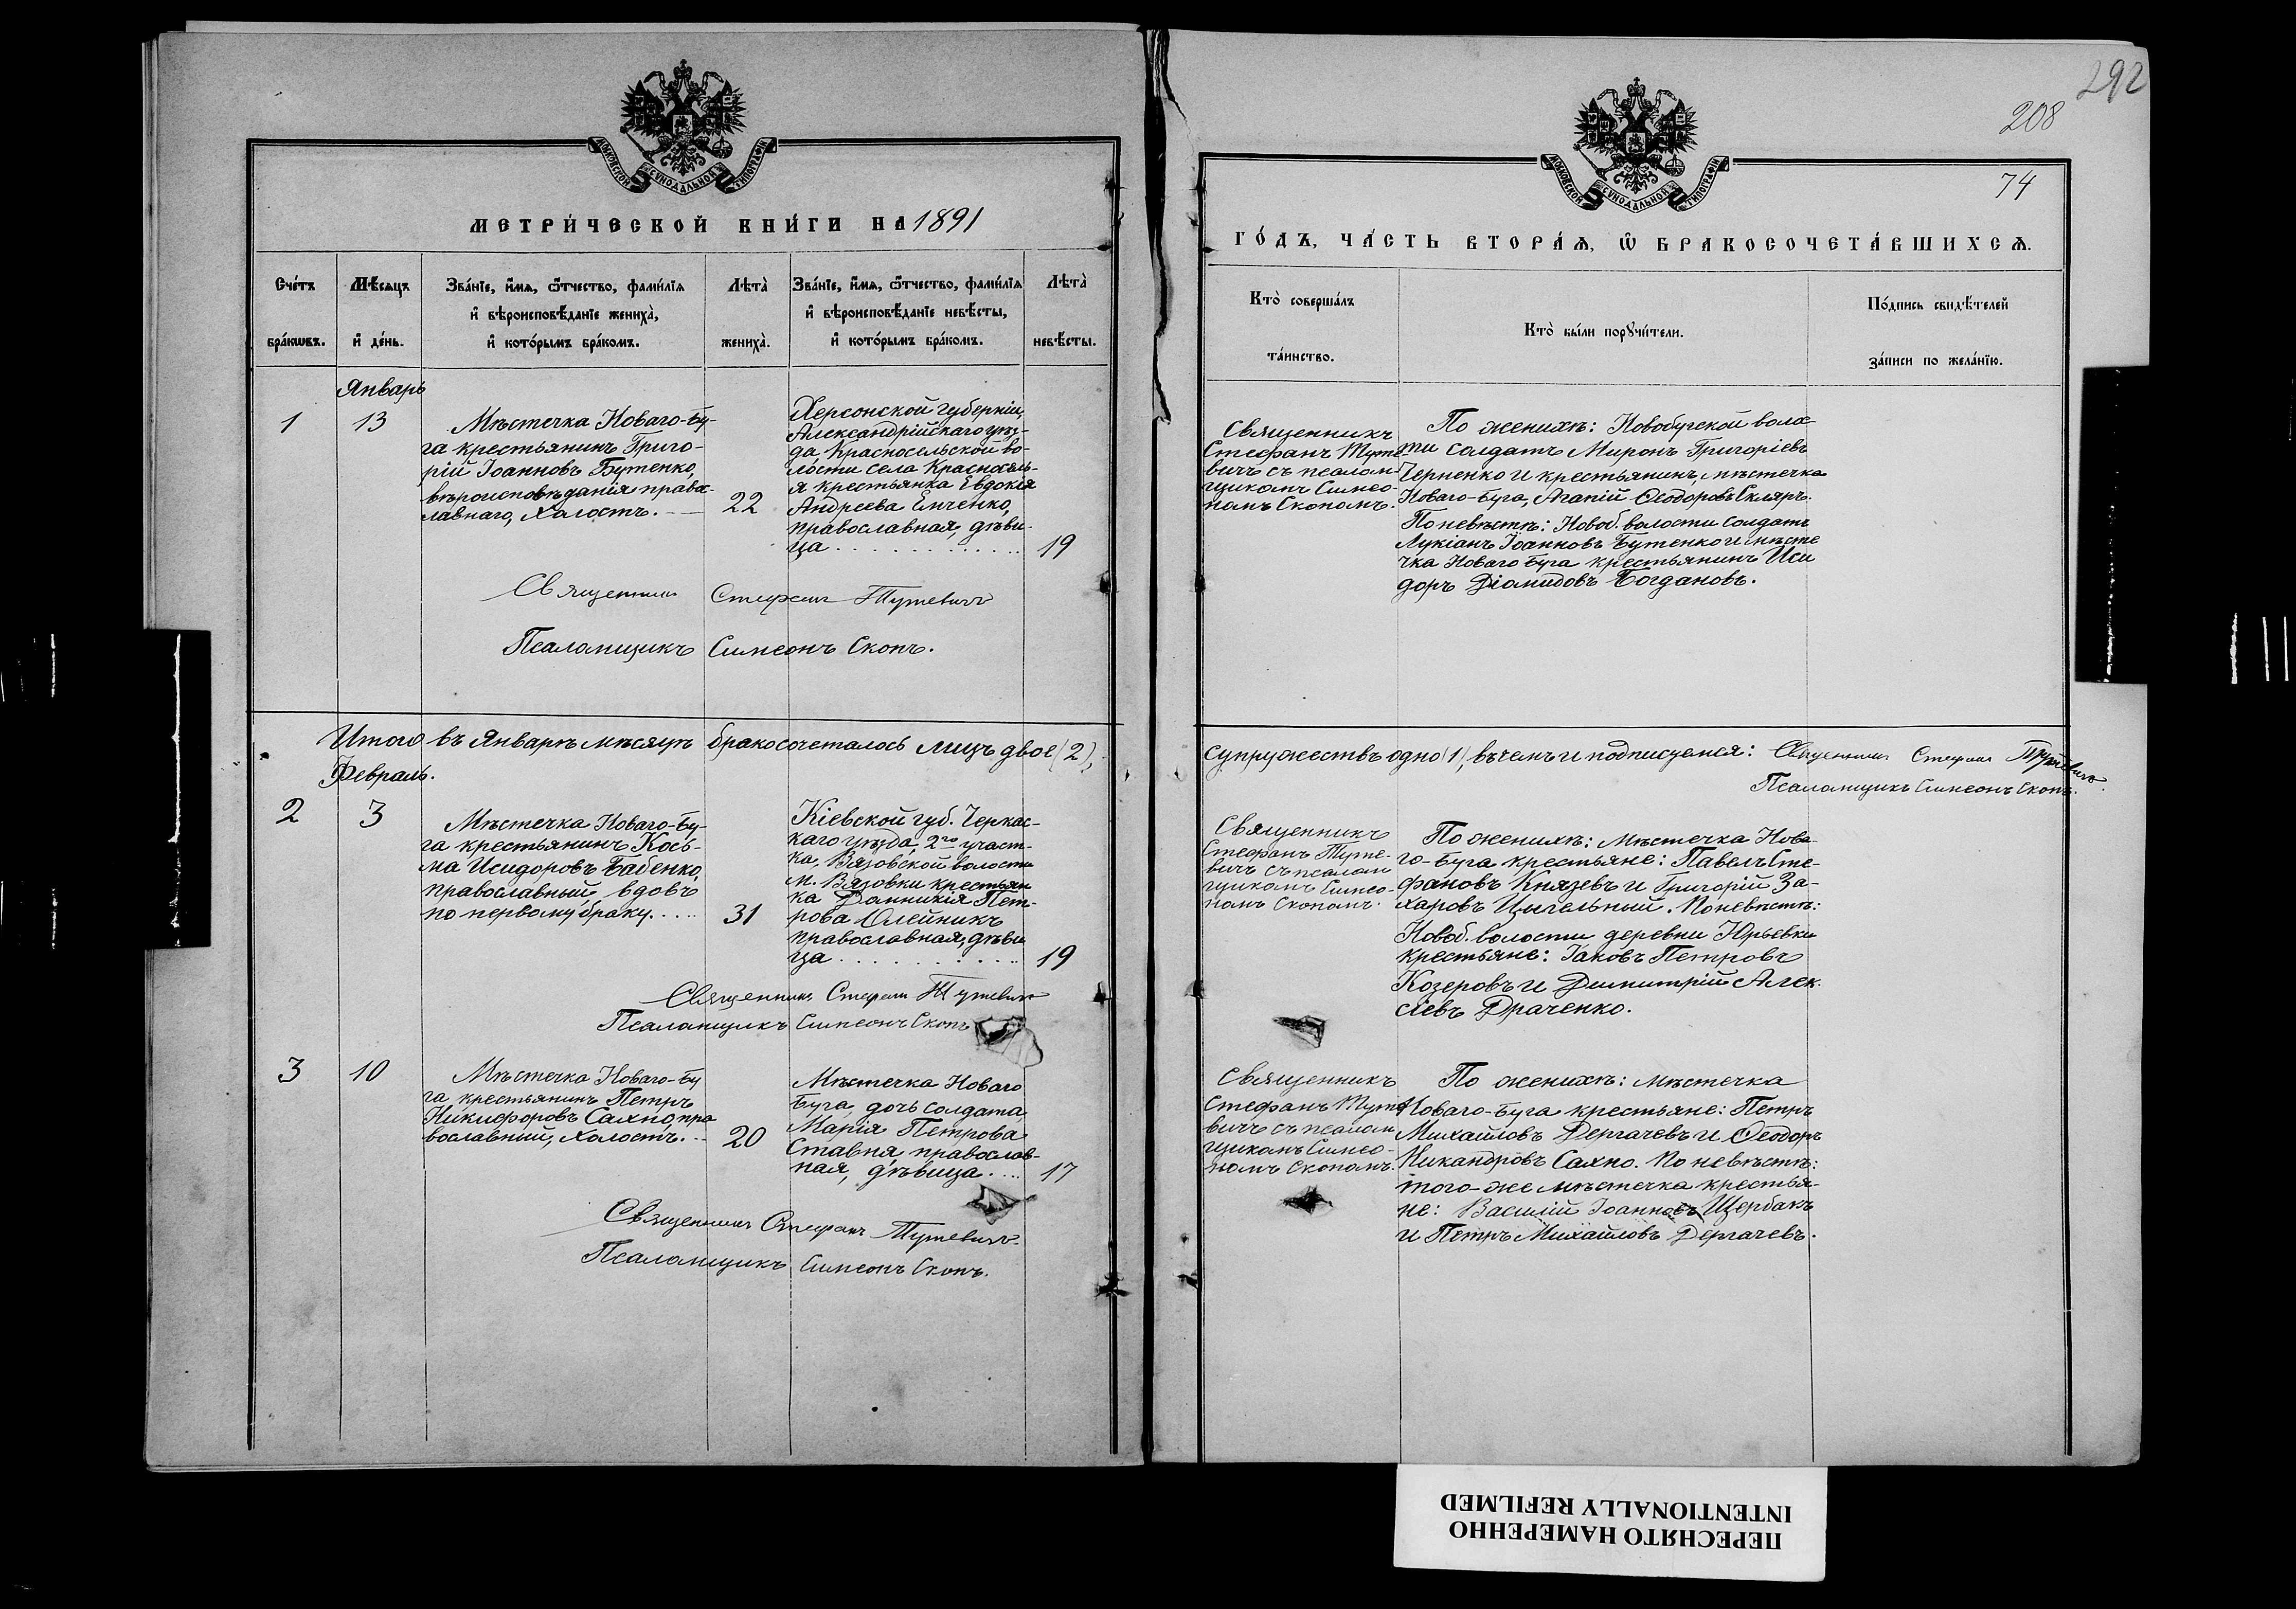 292
208
74
МОСКОВСКОЙ СѴНОДАЛЬНОЙ ТИПОГРАФІИ
МЕТРИ́ЧЕСКОЙ КНИ́ГИ НА 1891
Сче́тъ бра́кѡвъ.
Мѣ́сяцъ и҆ де́нь.
Зва́нїе, и҆́мѧ, ѻ҆́тчество, фами́лїѧ
и҆ вѣроисповѣ́данїе жениха̀,
и҆ кото́рымъ бра́комъ.
Лѣта̀ жениха̀.
Зва́нїе, и҆́мѧ, ѻ҆́тчество, фами́лїѧ
и҆ вѣроисповѣ́данїе невѣ́сты,
и҆ кото́рымъ бра́комъ.
Лѣта̀ невѣ́сты.
Январь
1
13
Мѣстечка Новаго-Бу-
га крестьянинъ Григо-
рій Іоанновъ Бутенко,
вѣроисповѣданія правос-
лавнаго, холостъ.
22
Херсонской губерніи,
Александрійскаго уѣз-
да Красносельской во-
лости села Красносель-
я крестьянка Евдокія
Андреева Емченко,
православная, дѣви-
ца
19
Священникъ Стефанъ Тутевичъ
Псаломщикъ Симеонъ Скопъ.
Итого въ Январѣ мѣсяцѣ бракосочеталось лицъ двое (2),
Февраль.
2
3
Мѣстечка Новаго-Бу-
га крестьянинъ Кось-
ма Исидоровъ Бабенко,
православный, вдовъ
по первому браку.
31
Кіевской губ. Черкас-
каго уѣзда, 2го участ-
ка, Вязовской волости
м. Вязовки крестьян
ка Домникія Пет-
рова Олейникъ
православная, дѣви
ца
19
Священникъ Стефанъ Тутевичъ
Псаломщикъ Симеонъ Скопъ
3
10
Мѣстечка Новаго-Бу
га крестьянинъ Петръ
Никифоровъ Сахно, пра
вославний, холостъ.
20
Мѣстечка Новаго
Буга, дочь солдата,
Марія Петрова
Ставня, православ-
ная, дѣвица
17
Священникъ Стефанъ Тутевичъ
Псаломщикъ Симеонъ Скопъ.
МОСКОВСКОЙ СѴНОДАЛЬНОЙ ТИПОГРАФІИ
ГО́ДЪ, ЧА́СТЬ ВТОРА́Ѧ, Ѽ БРАКОСОЧЕТА́ВШИХСѦ.
Кто̀ соверша́лъ та́инство.
Кто̀ бы́ли порꙋчи́тели.
По́дпись свидѣ́телей
за́писи по жела́нїю.
Священникъ
Стефанъ Туте-
вичъ съ псалом-
щикомъ Симео-
номъ Скопомъ.
По женихѣ: Новобугской воло-
сти солдатъ Миронъ Григоріевъ
Черненко и крестьянинъ, мѣстечка
Новаго-Буга, Агапій Ѳеодоровъ Скляръ.
По невѣстѣ: Новоб. волости солдатъ
Лукіанъ Іоанновъ Бутенко и мѣсте
чка Новаго Буга крестьянинъ Иси
доръ Діамидовъ Богдановъ.
супружествъ одно (1), въ чемъ и подписуемся: Священникъ Стефанъ Тутевичъ
Псаломщикъ Симеонъ Скопъ.
Священникъ
Стефанъ Туте-
вичъ съ псалом
щикомъ Симео-
номъ Скопомъ.
По женихѣ: Мѣстечка Нова-
го-Буга крестьяне: Павелъ Сте-
фановъ Князевъ и Григорій За-
харовъ Цыгельный. По невѣстѣ:
Новоб. волости деревни Юрьевки
крестьяне: Іаковъ Петровъ
Козеровъ и Димитрій Алек
сіевъ Драченко.
Священникъ
Стефанъ Туте
вичъ съ псалом
щикомъ Симео-
номъ Скопомъ.
По женихѣ: мѣстечка
Новаго-Буга крестьяне: Петръ
Михайловъ Дергачевъ и Ѳеодоръ
Никандровъ Сахно. По невѣстѣ:
того-же мѣстечка крестья-
не: Василій Іоанновъ Щербакъ
и Петръ Михайловъ Дергачевъ.
ПЕРЕСНЯТО НАМЕРЕННО
INTENTIONALLY REFILMED